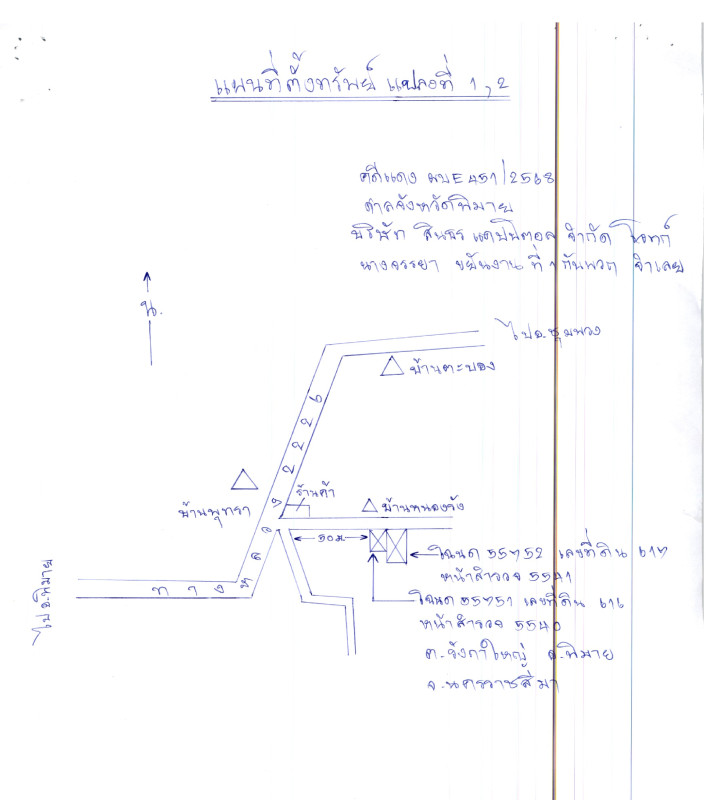 แผนที่ตั้งทรัพย์ แปลงที่ 1,2
คดีแดง ผบE451/2568
ศาลจังหวัดพิมาย
บริษัท สินธร แคปปิตอล จำกัด โจทก์
นางจรรยา ขยันงาน ที่ 1 กับพวก จำเลย
น.
ไปอ.ชุมพวง
บ้านตะบอง
2226
ร้านค้า
บ้านพุทรา
บ้านหนองจัง
50ม
ทางหลวง
ไปอ.พิมาย
โฉนด 35752 เลขที่ดิน 617
หน้าสำรวจ 5541
โฉนด 35751 เลขที่ดิน 616
หน้าสำรวจ 5540
ต.รังกาใหญ่ อ.พิมาย
จ.นครราชสีมา